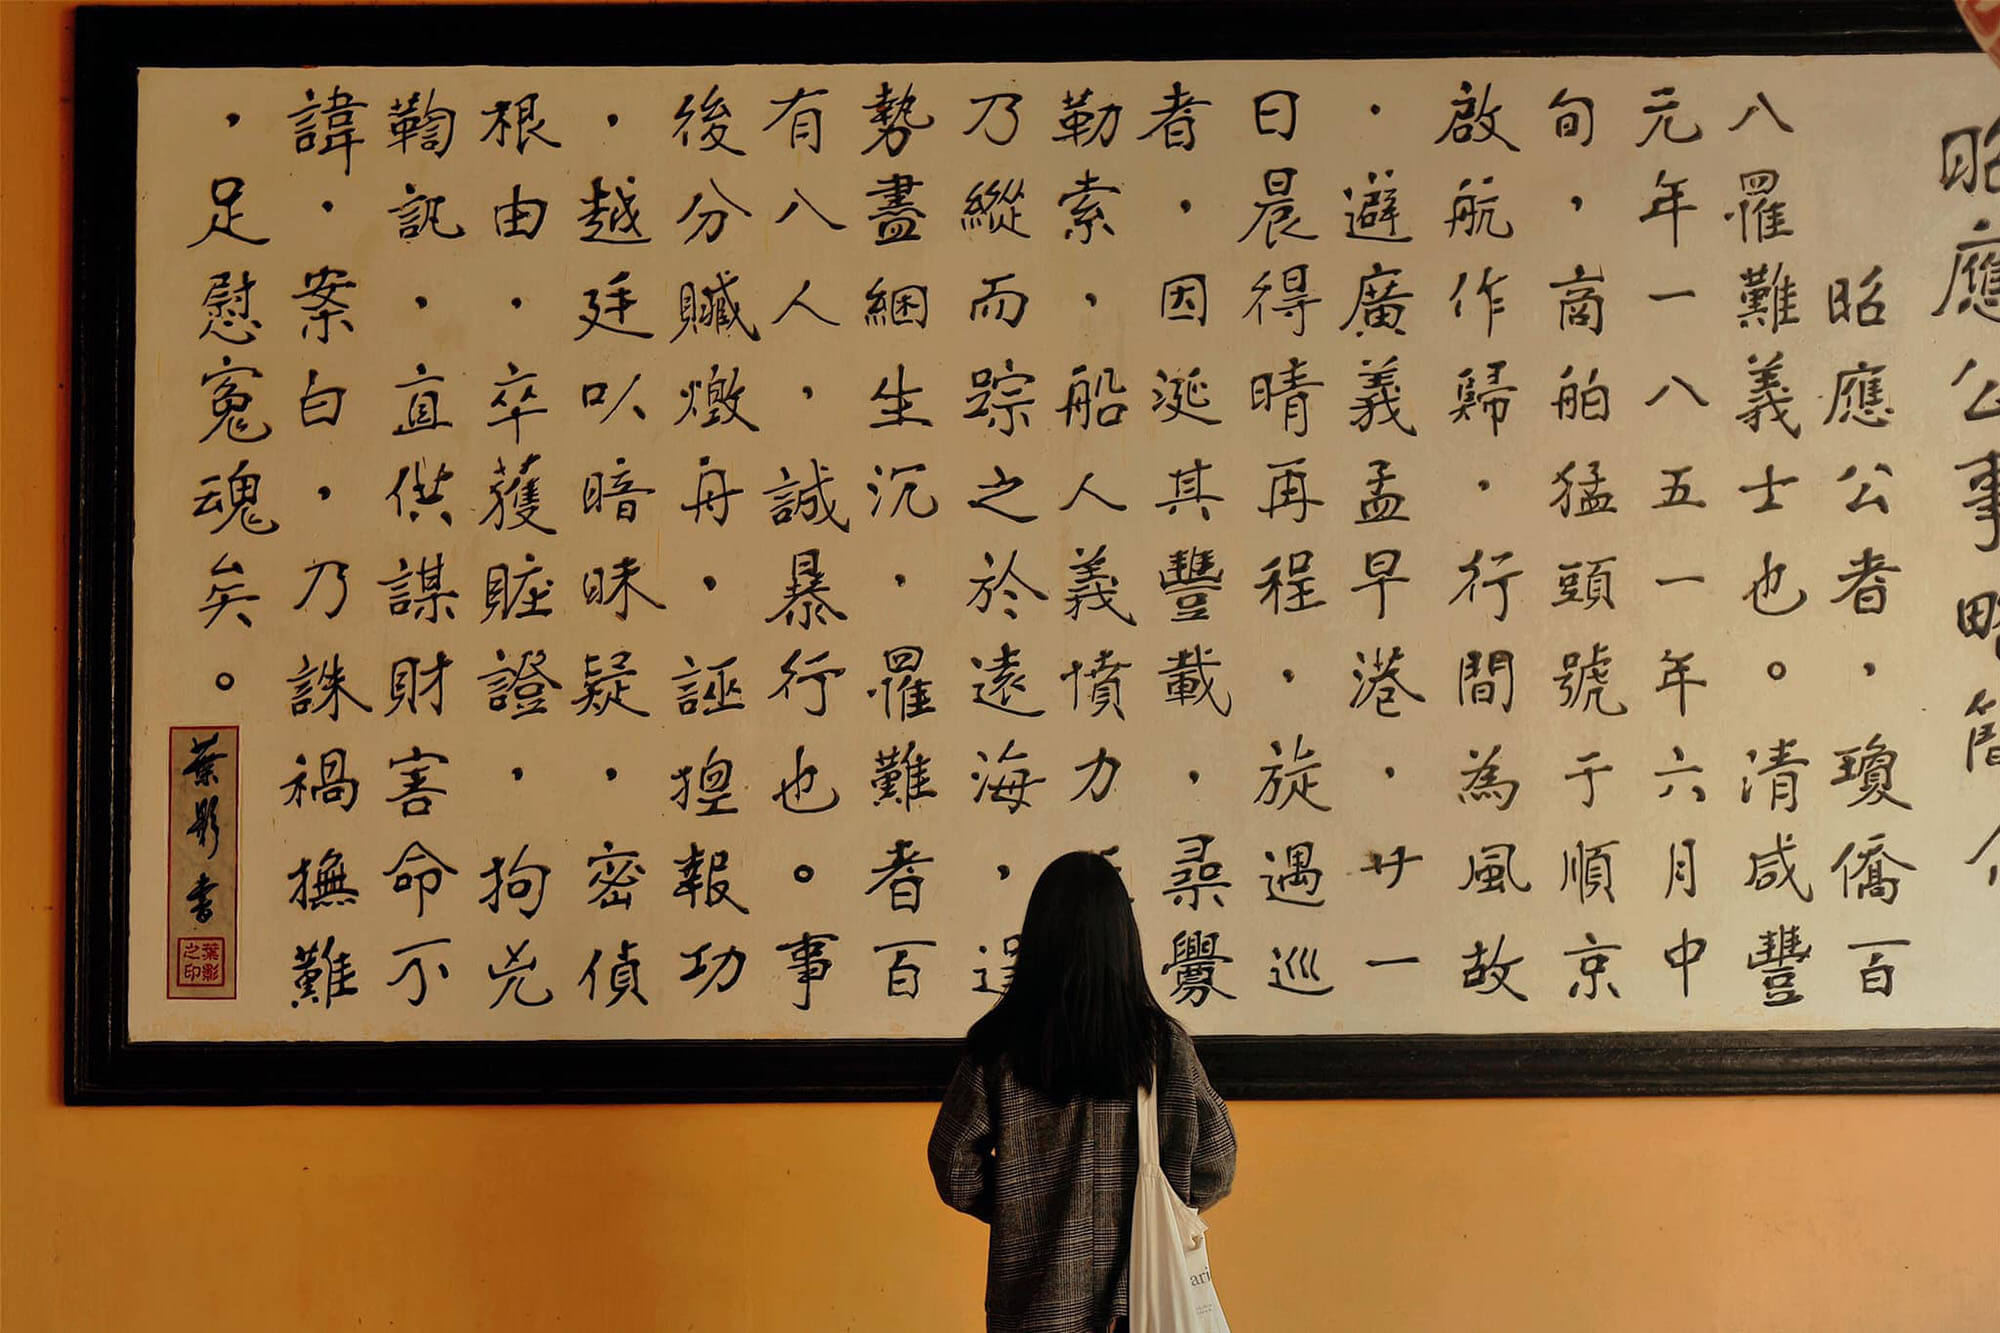 昭應公事略簡介
昭應公者，瓊僑百
八罹難義士也。清咸豐
元年一八五一年六月中
旬，商舶猛頭號于順京
啟航作歸，行間為風故
，避廣義孟早港，廿一
日晨得晴再程，旋遇巡
者，因涎其豐載，尋釁
勒索，船人義憤力
乃縱而踪之於遠海，逞
勢盡綑生沉，罹難者百
有八人，誠暴行也。事
後分贓燬舟，誣捏報功
，越廷以暗昧疑，密偵
根由，卒獲賍證，拘兇
鞫訊，直供謀財害命不
諱，案白，乃誅禍撫難
，足慰冤魂矣。
葉影書
葉影之印
ari